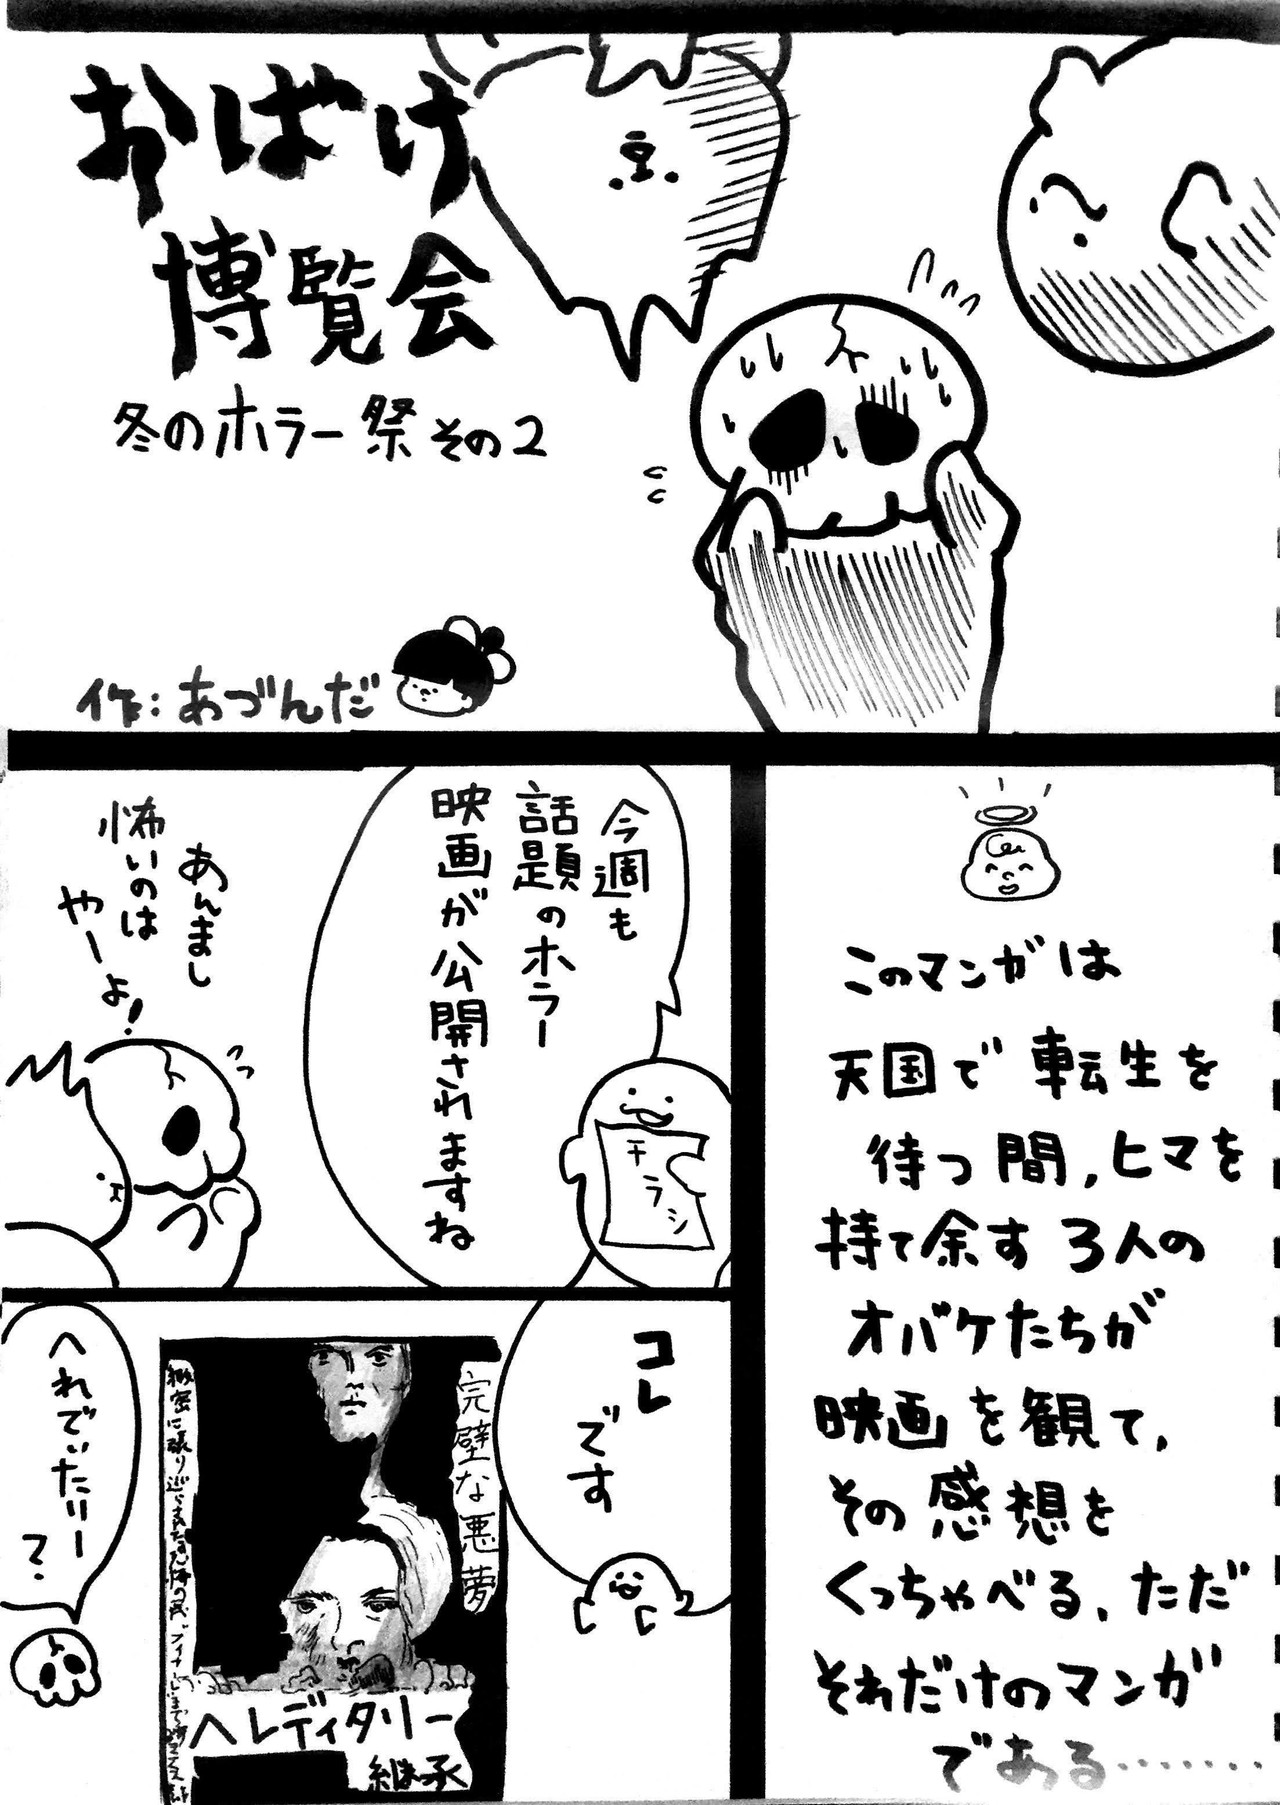 おばけ
博覧会
冬のホラー祭 その2
作:あづんだ
このマンガは
天国で転生を
待つ間,ヒマを
持て余す3人の
オバケたちが
映画を観て,
その感想を
くっちゃべる、ただ
それだけのマンガ
である………
今週も
話題のホラー
映画が公開されますね
チラシ
あんまし
怖いのは
やーよ!
コレ
です
完璧な悪夢
ヘレディタリー
継承
へれでぃたりー
?